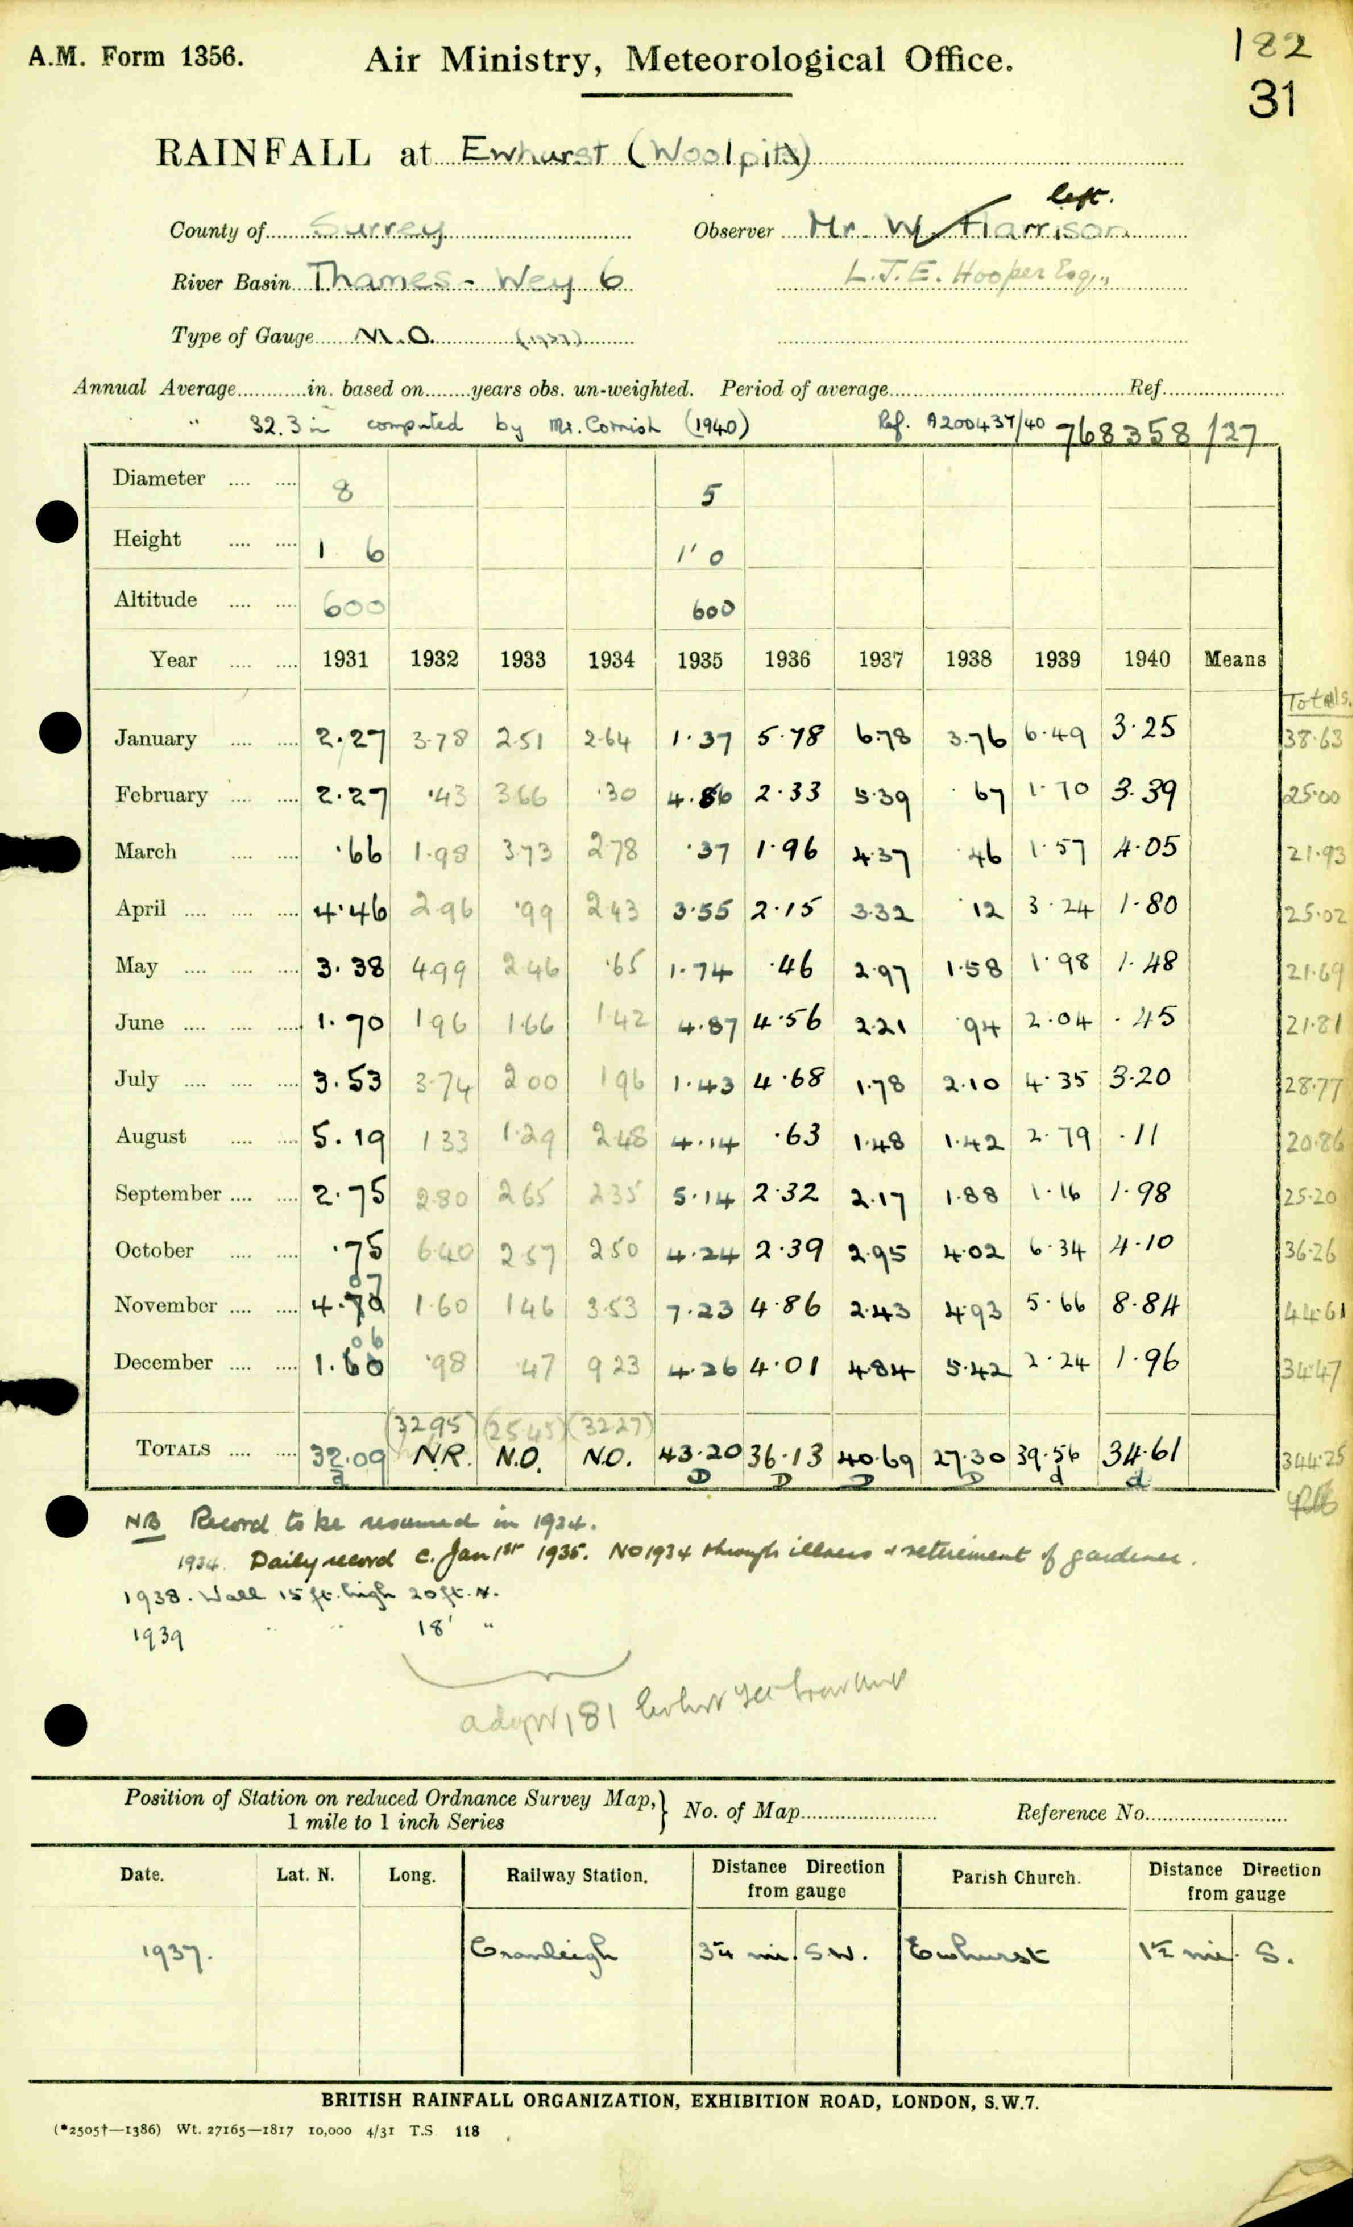 A.M. Form 1356. Air Ministry, Meteorological Office. 182
31
RAINFALL at Ewhurst (Woolpits)
left.
County of Surrey Observer Mr. W. Harrison
River Basin Thames - Wey 6 L.J.E. Hooper Esq.,
Type of Gauge M.O. (1937)
Annual Average in. based on years obs. un-weighted. Period of average Ref.
" 32.3 in computed by Mr. Cornish (1940) Ref. A200437/40 768358/27
Diameter 8 5
Height 1 6 1' 0
Altitude 600 600
Year 1931 1932 1933 1934 1935 1936 1937 1938 1939 1940 Means
Totals.
January 2.27 3.78 2.51 2.64 1.37 5.78 6.78 3.76 6.49 3.25 38.63
February 2.27 .43 3.66 .30 4.86 2.33 5.39 .67 1.70 3.39 25.00
March .66 1.98 3.73 2.78 .37 1.96 4.37 .46 1.57 4.05 21.93
April 4.46 2.96 .99 2.43 3.55 2.15 3.32 .12 3.24 1.80 25.02
May 3.38 4.99 2.46 .65 1.74 .46 2.97 1.58 1.98 1.48 21.69
June 1.70 1.96 1.66 1.42 4.87 4.56 2.21 .94 2.04 .45 21.81
July 3.53 3.74 2.00 1.96 1.43 4.68 1.78 2.10 4.35 3.20 28.77
August 5.19 1.33 1.29 2.48 4.14 .63 1.48 1.42 2.79 .11 20.86
September 2.75 2.80 2.65 2.35 5.14 2.32 2.17 1.88 1.16 1.98 25.20
October .75 6.40 2.57 2.50 4.24 2.39 2.95 4.02 6.34 4.10 36.26
07
November 4. 1.60 1.46 3.53 7.23 4.86 2.43 4.93 5.66 8.84 44.61
06
December 1. .98 .47 9.23 4.26 4.01 4.84 5.42 2.24 1.96 34.47
(32.95) (25.45) (32.27)
TOTALS 32.09 N.R. N.O. N.O. 43.20 36.13 40.69 27.30 39.56 34.61 344.25
d D D D D d d
NB Record to be resumed in 1934.
1934. Daily record c. Jan 1st 1935. NO 1934 through illness & retirement of gardener.
1938. Wall 15 ft. high 20 ft. N.
1939 " " 18' "
181
Position of Station on reduced Ordnance Survey Map, } No. of Map Reference No.
1 mile to 1 inch Series
Date. Lat. N. Long. Railway Station. Distance Direction from gauge Parish Church. Distance Direction from gauge
1937. Cranleigh 3¼ mi. S.W. Ewhurst 1½ mi. S.
BRITISH RAINFALL ORGANIZATION, EXHIBITION ROAD, LONDON, S.W.7.
(*2505†—1386) Wt. 27165—1817 10,000 4/31 T.S 118